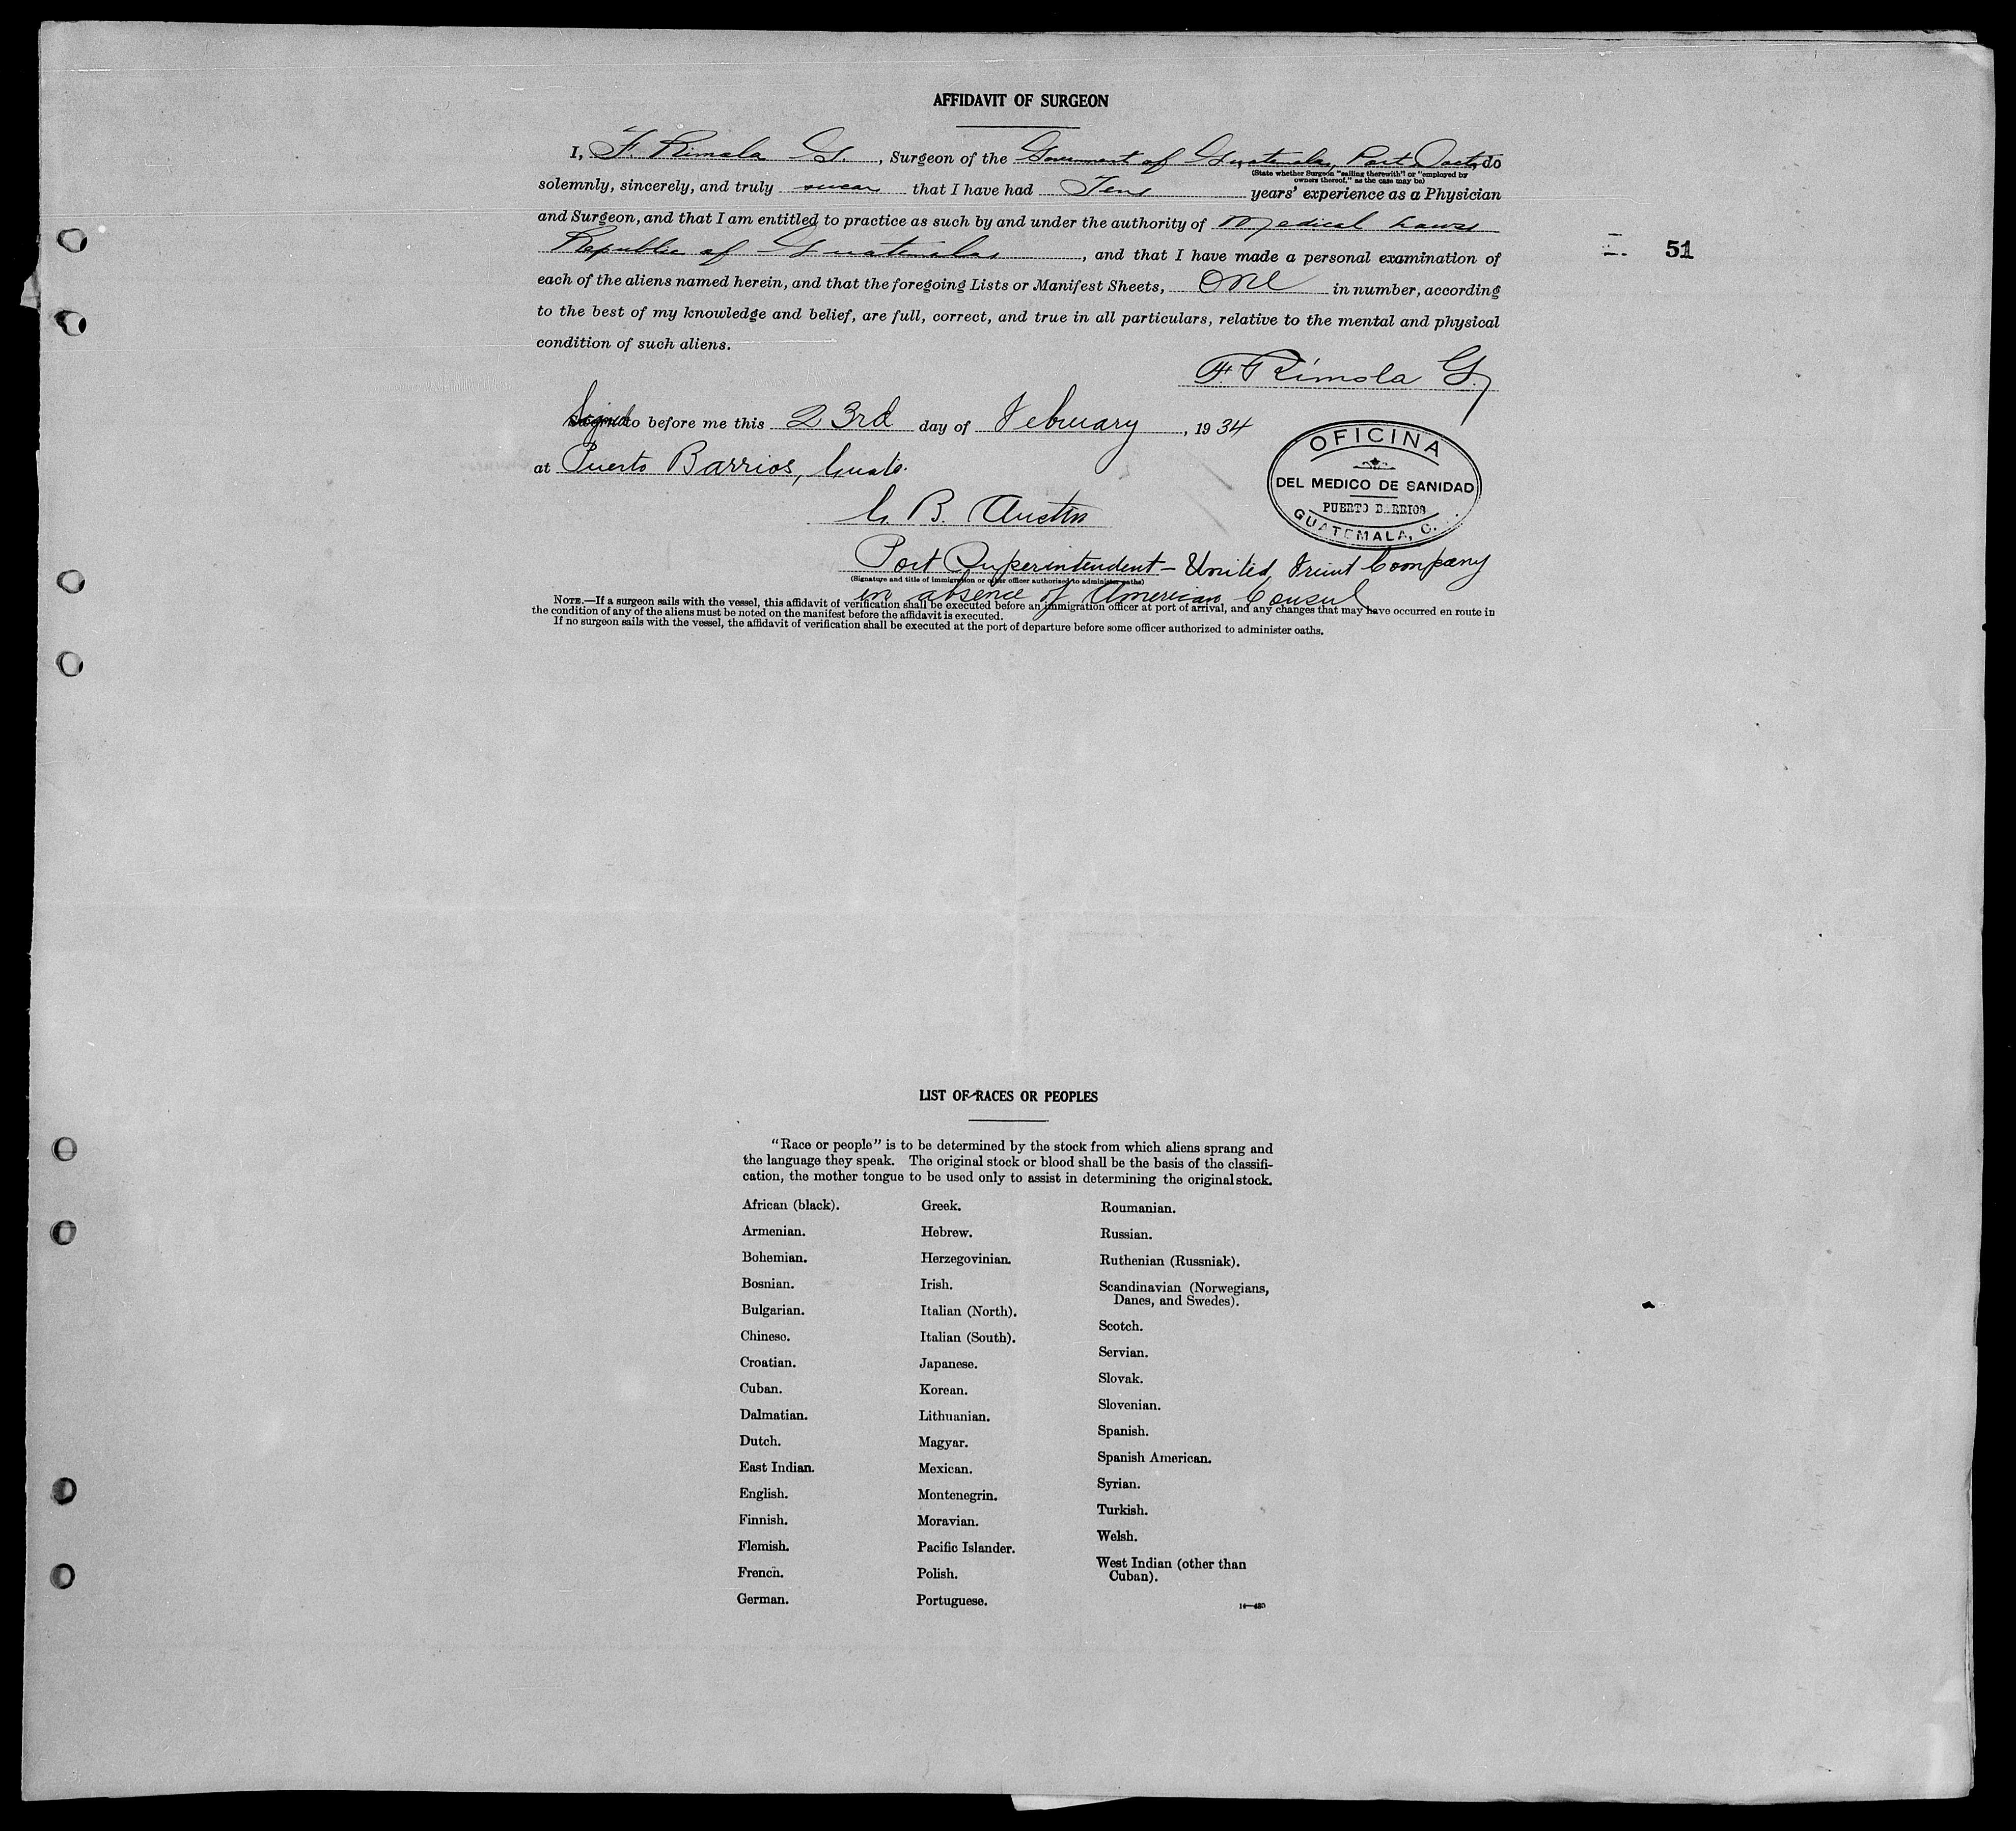 AFFIDAVIT OF SURGEON
I, F. Rimola G. , Surgeon of the Government of Guatemala, Port Doctor, do
(State whether Surgeon "sailing therewith" or "employed by
owners thereof," as the case may be)
solemnly, sincerely, and truly swear that I have had Ten years' experience as a Physician
and Surgeon, and that I am entitled to practice as such by and under the authority of Medical Laws
Republic of Guatemala , and that I have made a personal examination of
each of the aliens named herein, and that the foregoing Lists or Manifest Sheets, One in number, according
to the best of my knowledge and belief, are full, correct, and true in all particulars, relative to the mental and physical
condition of such aliens.
51
F. Rimola G.
Signed to before me this 23rd day of February , 1934
at Puerto Barrios, Guate.
OFICINA
DEL MEDICO DE SANIDAD
PUERTO BARRIOS
GUATEMALA, C.
G. B. Austin
Port Superintendent - United Fruit Company
(Signature and title of immigration or other officer authorized to administer oaths)
in absence of American Consul
NOTE.—If a surgeon sails with the vessel, this affidavit of verification shall be executed before an immigration officer at port of arrival, and any changes that may have occurred en route in
the condition of any of the aliens must be noted on the manifest before the affidavit is executed.
If no surgeon sails with the vessel, the affidavit of verification shall be executed at the port of departure before some officer authorized to administer oaths.
LIST OF RACES OR PEOPLES
"Race or people" is to be determined by the stock from which aliens sprang and
the language they speak. The original stock or blood shall be the basis of the classifi-
cation, the mother tongue to be used only to assist in determining the original stock.
African (black).
Armenian.
Bohemian.
Bosnian.
Bulgarian.
Chinese.
Croatian.
Cuban.
Dalmatian.
Dutch.
East Indian.
English.
Finnish.
Flemish.
French.
German.
Greek.
Hebrew.
Herzegovinian.
Irish.
Italian (North).
Italian (South).
Japanese.
Korean.
Lithuanian.
Magyar.
Mexican.
Montenegrin.
Moravian.
Pacific Islander.
Polish.
Portuguese.
Roumanian.
Russian.
Ruthenian (Russniak).
Scandinavian (Norwegians,
Danes, and Swedes).
Scotch.
Servian.
Slovak.
Slovenian.
Spanish.
Spanish American.
Syrian.
Turkish.
Welsh.
West Indian (other than
Cuban).